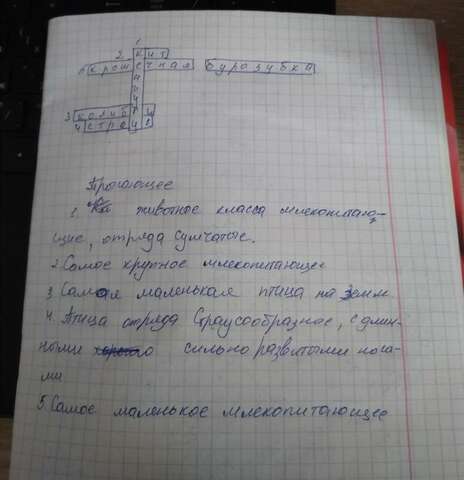 1
2 кит
5 крошечная бурозубка
3 колибри
4 страус
1. животное класса млекопитаю-
щие, отряда сумчатые.
2. Самое крупное млекопитающее
3. Самая маленькая птица на земле
4. Птица отряда Страусообразное, с длин-
ными сильно развитыми нога-
ми
5. Самое маленькое млекопитающее